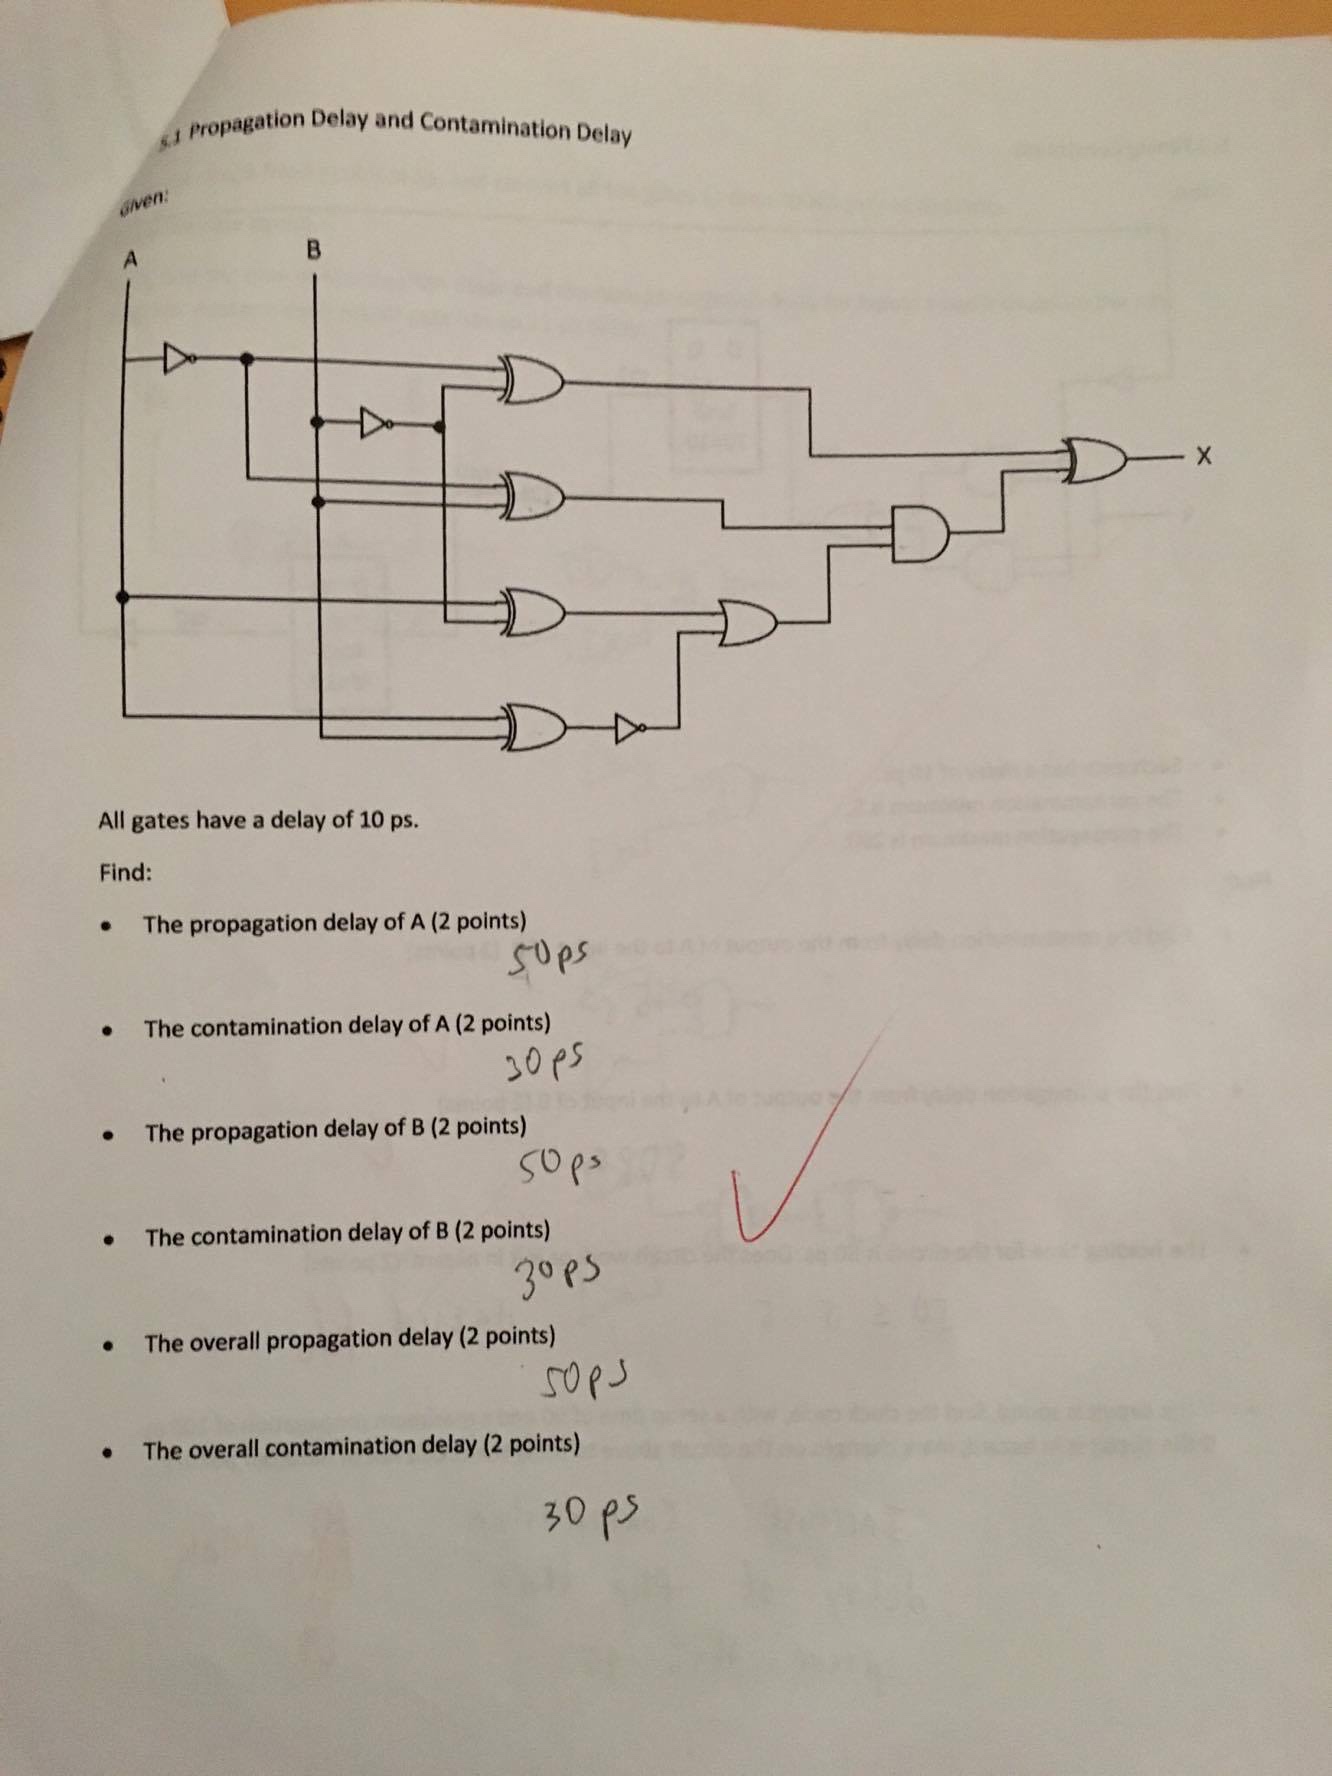 5.1 Propagation Delay and Contamination Delay
Given:
A
B
X
All gates have a delay of 10 ps.
Find:
• The propagation delay of A (2 points)
50ps
• The contamination delay of A (2 points)
30ps
• The propagation delay of B (2 points)
50ps
• The contamination delay of B (2 points)
30ps
• The overall propagation delay (2 points)
50ps
• The overall contamination delay (2 points)
30 ps